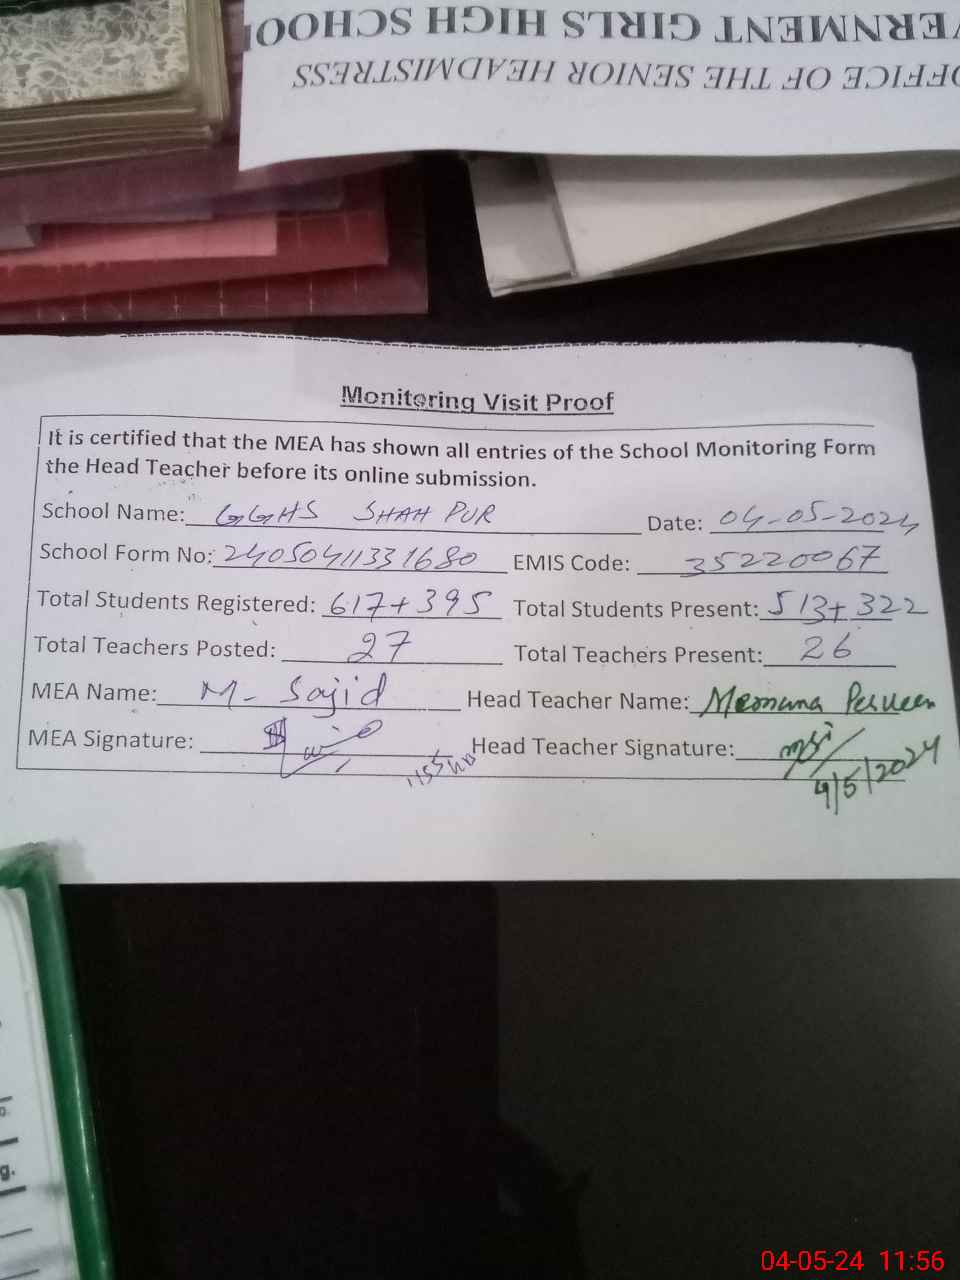 GOVERNMENT GIRLS HIGH SCHOOL
OFFICE OF THE SENIOR HEADMISTRESS
Monitoring Visit Proof
It is certified that the MEA has shown all entries of the School Monitoring Form
the Head Teacher before its online submission.
School Name: GGHS SHAH PUR Date: 04-05-2024
School Form No: 24050411331680 EMIS Code: 35220067
Total Students Registered: 617+395 Total Students Present: 513+322
Total Teachers Posted: 27 Total Teachers Present: 26
MEA Name: M- Sajid Head Teacher Name: Memuna Perveen
MEA Signature: 1155 hrs Head Teacher Signature:
4/5/2024
g.
04-05-24 11:56